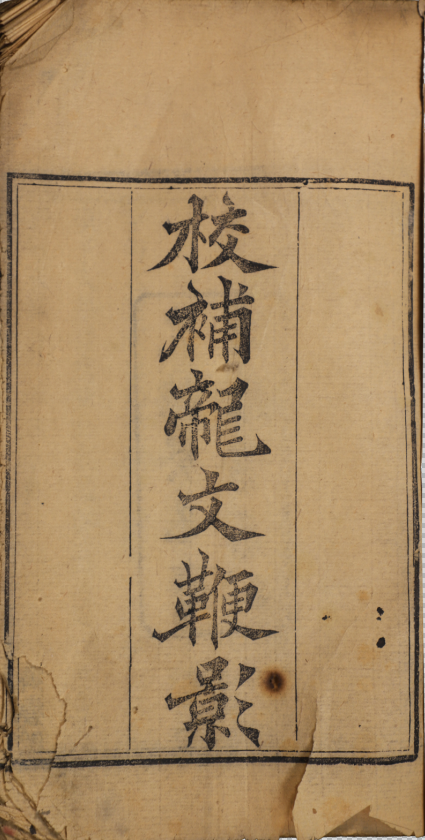 校補龍文鞭影